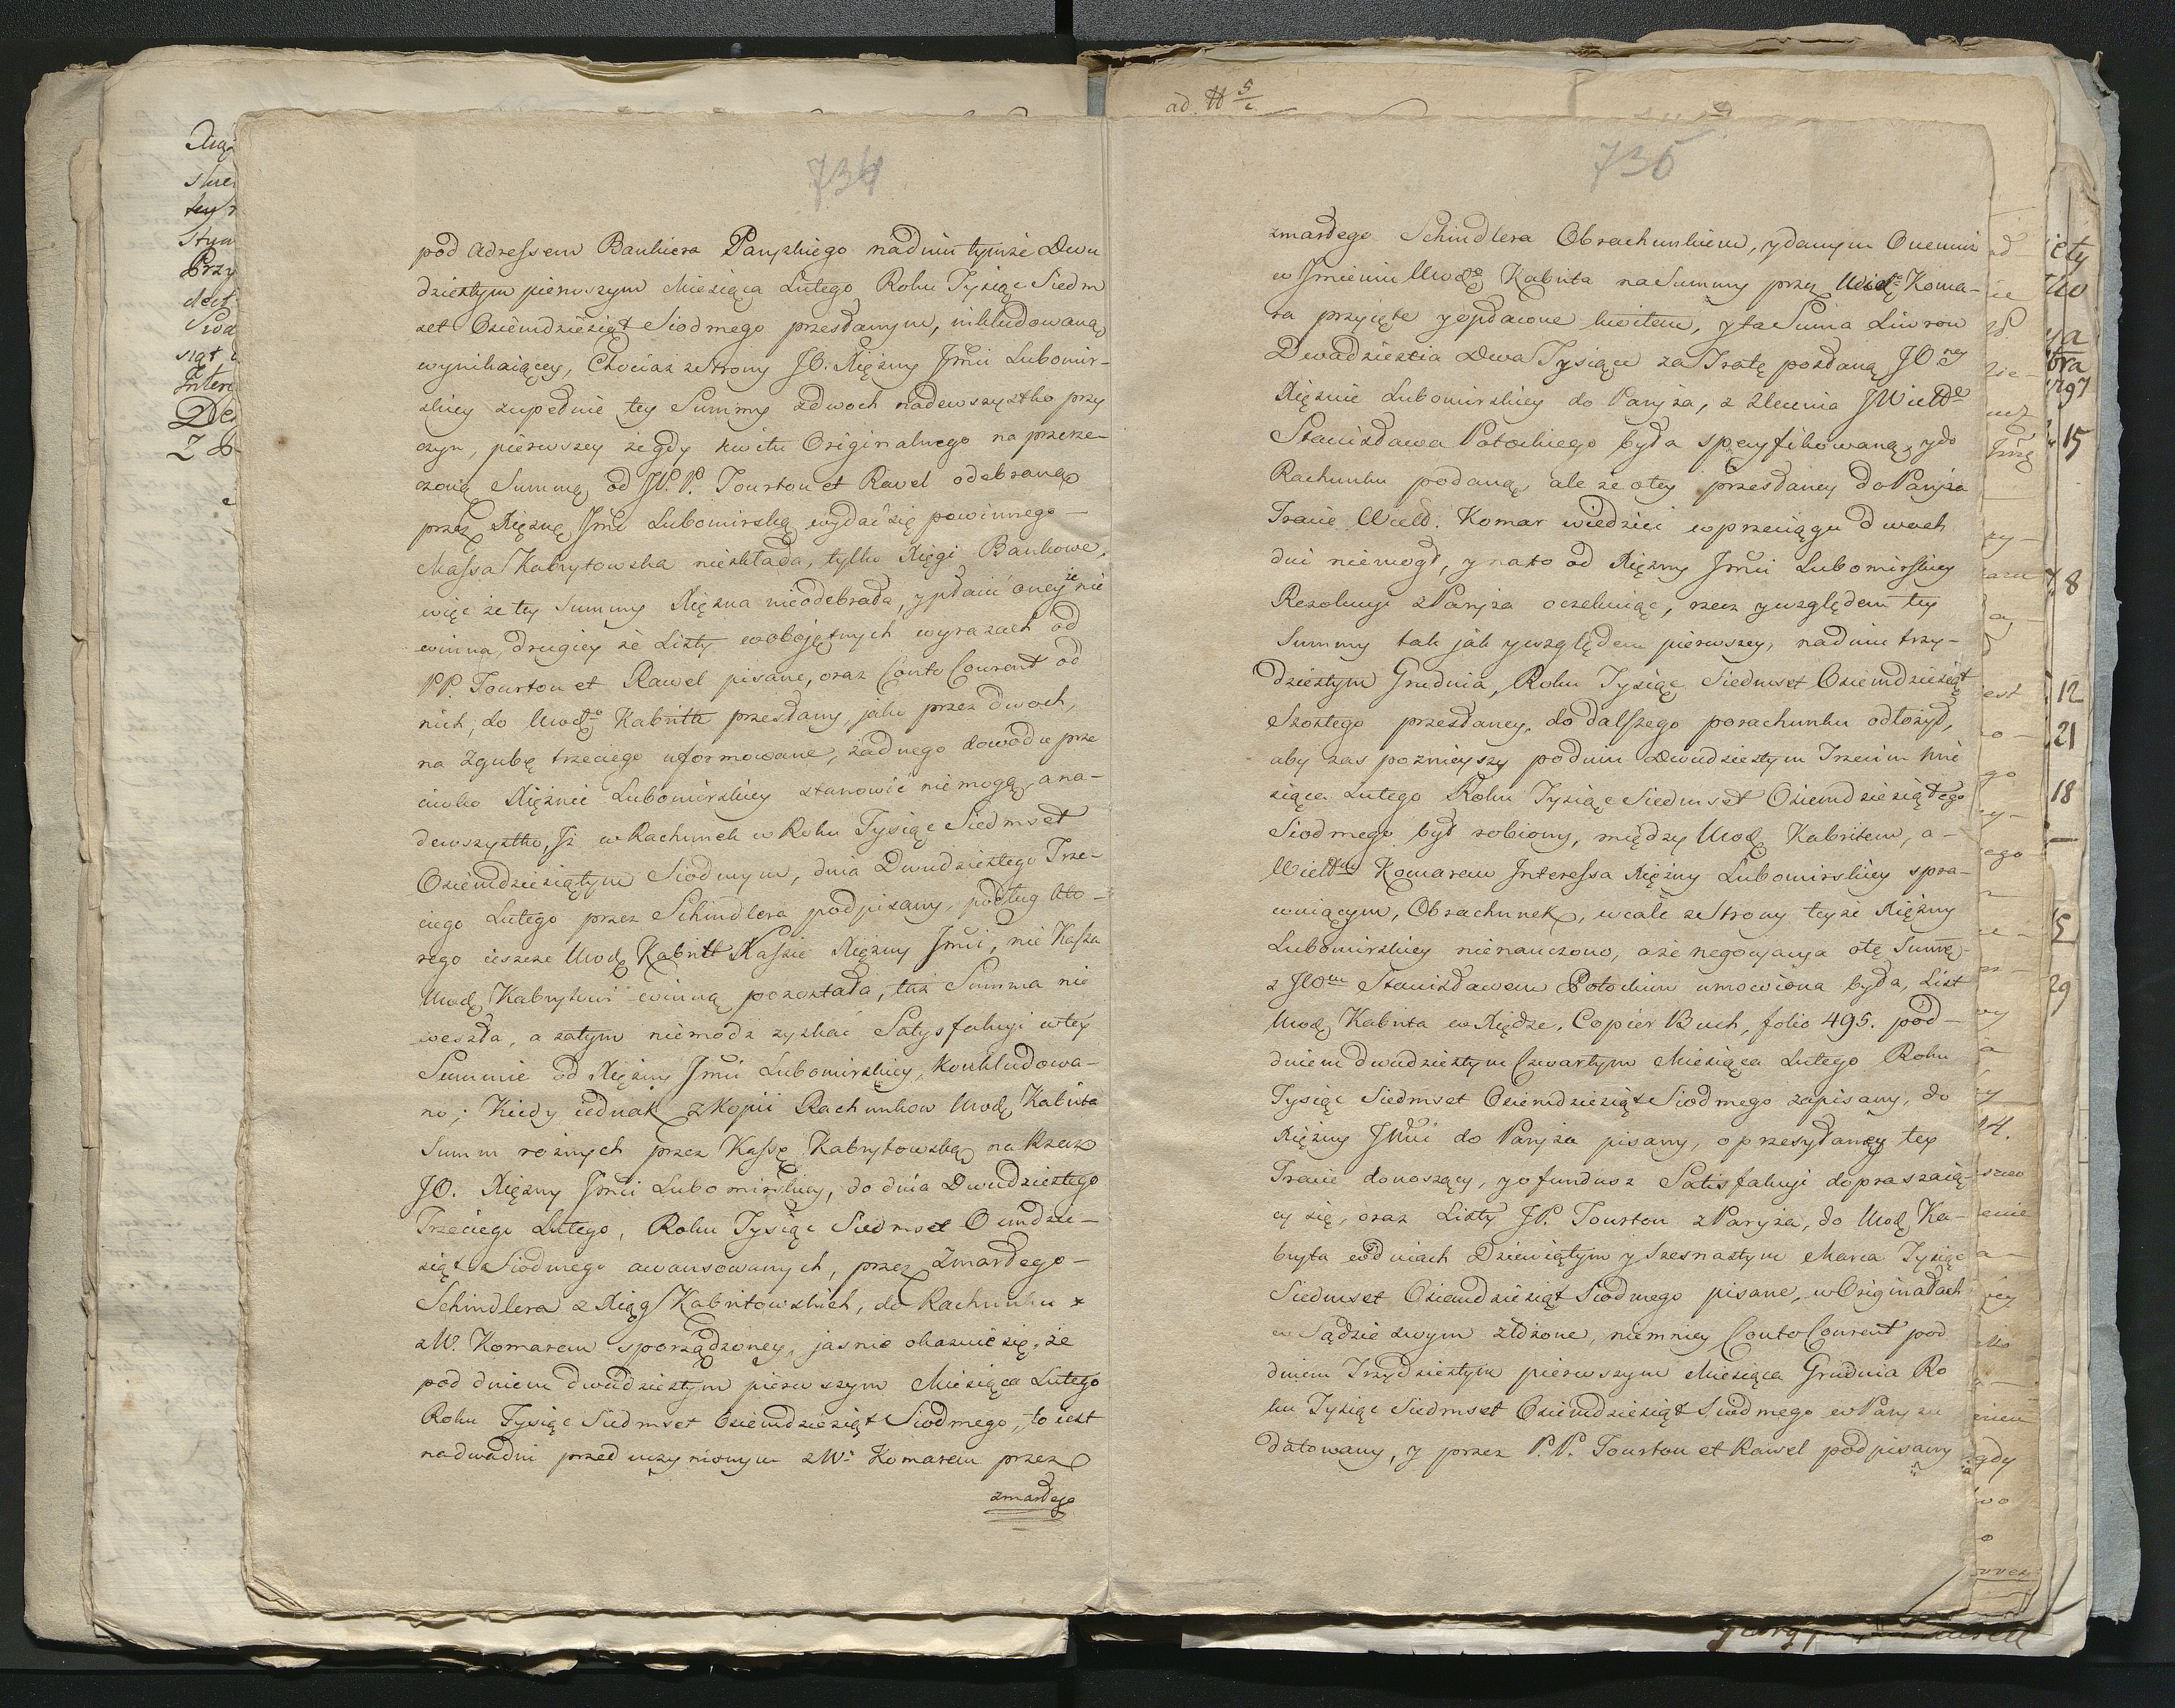 734
pod Adressem Bankiera Paryzkiego nadniu tymże Dwu
dziestym pierwszym Miesiąca Lutego Roku Tysiąc Siedm
set Osiemdziesiąt Siodmego przesłanym, inkludowaną
wynikaiącey, Chociaz ze strony JO. Xiężny Jmci Lubomir-
skiey zupełnie tey Summy zdwoch nadewszystko przy
czyn, pierwszey że gdy kwitu Originalnego na przerze-
czoną Summę od JP. P. Tourton et Ravel odebraną
przez Xiężnę Jmć Lubomirską wydać się powinnego -
Massa Kabrytowska nieskłada, tylko Xięgi Bankowe,
więc że tey Summy Xiężna nieodebrała, y płacić oney że nie
winna, drugiey że Listy wobojętnych wyrazach od
PP. Tourton et Rawel pisane, oraz Conto Courent od
nich, do Urodgo Kabrita przesłany, jako przez dwoch,
na zgubę trzeciego uformowane, żadnego dowodu prze
ciwko Xiężnie Lubomirskiey stanowić nie mogą, a na-
dewszystko, Iż w Rachunek w Roku Tysiąc Siedmset
Osiemdziesiątym Siodmym, dnia Dwudziestego Trze-
ciego Lutego przez Schindlera podpisany, podług kto-
rego ieszcze Urodz Kabritt Kassie Xiężny Jmci, nie Kassa
Urodz Kabrytowi winną pozostała, taż Summa nie
weszła, a zatym niemodz zyskać Satysfakcyi wtey
Summie od Xiężny Jmci Lubomirskiey, konkludowa-
no; Kiedy iednak z Kopii Rachunkow Urodz Kabrita
Summ roznych przez Kassę Kabrytowską na Rzecz
JO. Xiężny Jmci Lubomirskiey, do dnia Dwudziestego
Trzeciego Lutego, Roku Tysiąc Siedmset Osmdzie-
siąt Siodmego awansowanych, przez Zmarłego -
Schindlera z Xiąg Kabritowskich, do Rachunku
z W. Komarem sporządzoney, jasnie okazuie się, że
pod dniem dwudziestym pierwszym Miesiąca Lutego
Roku Tysiąc Siedmset Osiemdziesiąt Siodmego, to iest
nadwadni przed uczynionym z W. Komarem przez
zmarłego
ad N 5/c
735
zmarłego Schindlera Obrachunkiem, y danym Onemuż
w Imieniu Urodgo Kabrita na Summy przez Wielgo Koma-
ra przyięte y opłacone kwitem, y ta Suma Liwrow
Dwadziescia Dwa Tysiące za Tratę posłaną JOney
Xiężnie Lubomirskiey do Paryża, z zlecenia JWielgo
Stanisława Potockiego była specyfikowaną, y do
Rachunku podaną, ale że o tey przesłaney do Paryża
Tracie Wield. Komar wiedzieć w przeciągu dwoch
dni niemogł, y na to od Xiężny Jmci Lubomirskiey
Rezolucyi z Paryża oczekuiąc, rzecz y względem tey
Summy tak jak y względem pierwszey, nadniu trzy-
dziestym Grudnia, Roku Tysiąc Siedmset Osiemdziesiąt
Szostego przesłaney, do dalszego porachunku odłożył,
aby zas poznieyszy pod dniem Dwudziestym Trzecim Mie
siąca Lutego Roku Tysiąc Siedmset Osiemdziesiątego
Siodmego był robiony, między Urodz Kabritem, a -
Wieldm Komarem Interessa Xiężny Lubomirskiey spra-
wuiącym, Obrachunek, wcale ze strony teyże Xiężny
Lubomirskiey nienauczono, a że negocyacya o tę Summę
z JWm Stanisławem Potockim umowiona była, List
Urodz Kabrita w Xiędze, Copier Buch, folio 495. pod -
dniem dwudziestym Czwartym Miesiąca Lutego Roku
Tysiąc Siedmset Osiemdziesiąt Siodmego zapisany, do
Xiężny Jmci do Paryża pisany, o przesyłaney tey
Tracie donoszący, y o fundusz Satisfakcyi dopraszaią-
cy się, oraz Listy JP. Tourton z Paryża, do Urodz Ka-
bryta w dniach Dziewiątym y Szesnastym Marca Tysiąc
Siedmset Osiemdziesiąt Siodmego pisane, w Originałach
w Sądzie swym złożone, niemniey Conto Courent pod
dniem Trzydziestym pierwszym Miesiąca Grudnia Ro
ku Tysiąc Siedmset Osiemdziesiąt Siodmego w Paryżu
datowany, y przez P.P. Tourton et Rawel podpisany